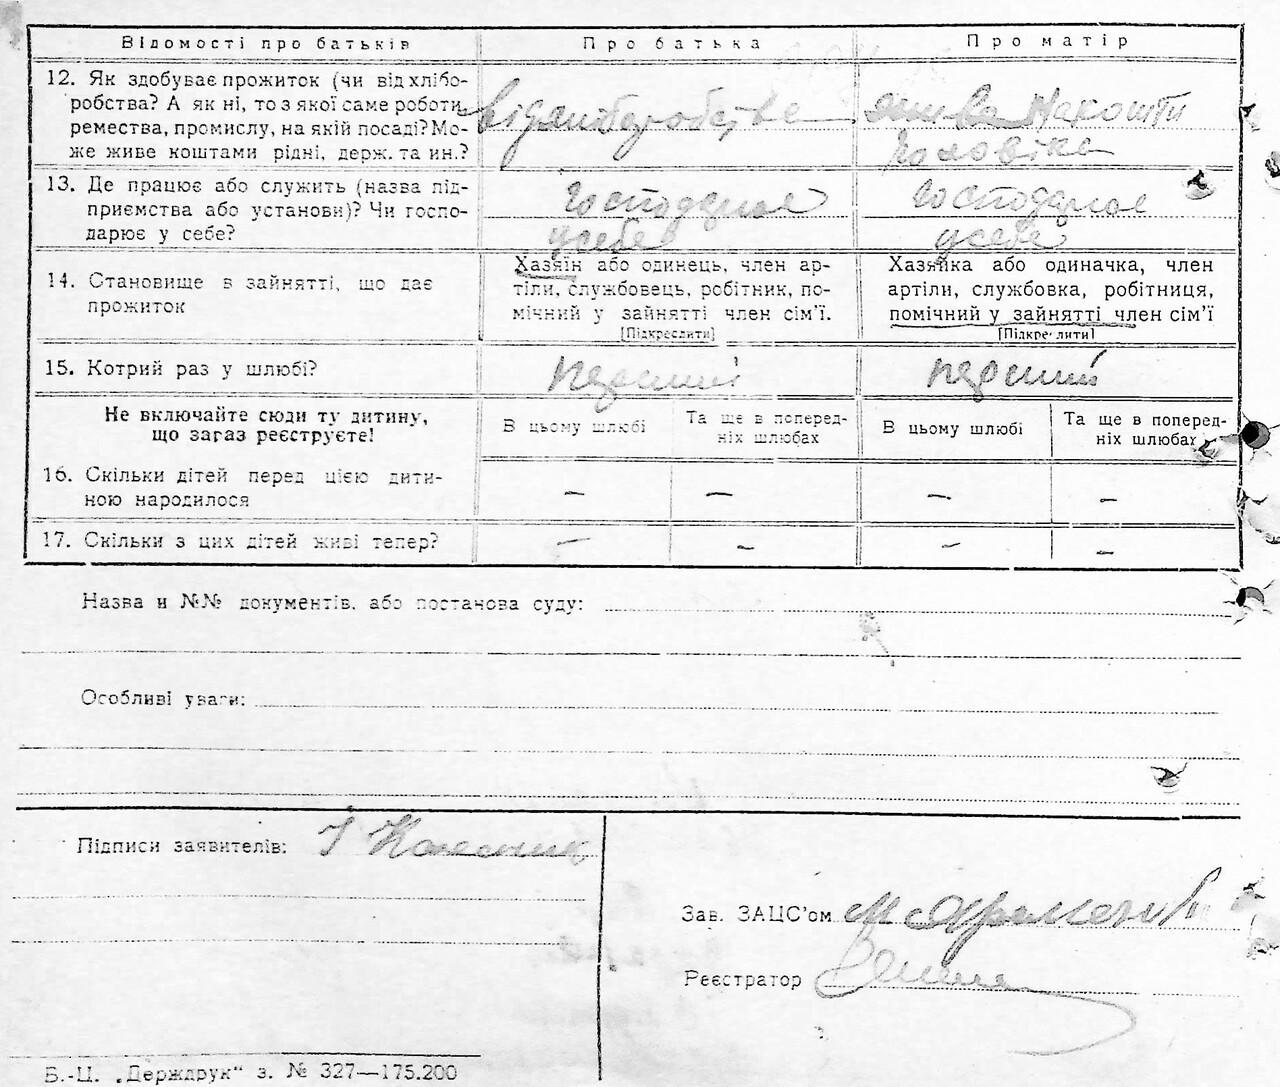 Відомості про батьків
Про батька
Про матір
12. Як здобуває прожиток (чи від хлібо-
робства? А як ні, то з якої саме роботи,
ремества, промислу, на якій посаді? Мо-
же живе коштами рідні, держ. та ин.?
від хліборобства
на кошти
чоловіка
13. Де працює або служить (назва під-
приємства або установи)? Чи госпо-
дарює у себе?
Господарює
у себе
Господарює
у себе
14. Становище в зайнятті, що дає
прожиток
Хазяїн або одинець, член ар-
тіли, службовець, робітник, по-
мічний у зайнятті член сім'ї.
[Підкреслити]
Хазяйка або одиначка, член
артіли, службовка, робітниця,
помічний у зайнятті член сім'ї
[Підкреслити]
15. Котрий раз у шлюбі?
перший
перший
Не включайте сюди ту дитину,
що зараз реєструєте!
В цьому шлюбі
Та ще в поперед-
ніх шлюбах
В цьому шлюбі
Та ще в поперед-
ніх шлюбах
16. Скільки дітей перед цією дити-
ною народилося
— — — —
17. Скільки з цих дітей живі тепер?
— — — —
Назва и №№ документів, або постанова суду:
Особливі уваги:
Підписи заявителів: І Колесник
Зав. ЗАЦС'ом
Реєстратор
Б.-Ц. „Держдрук“ з. № 327—175.200